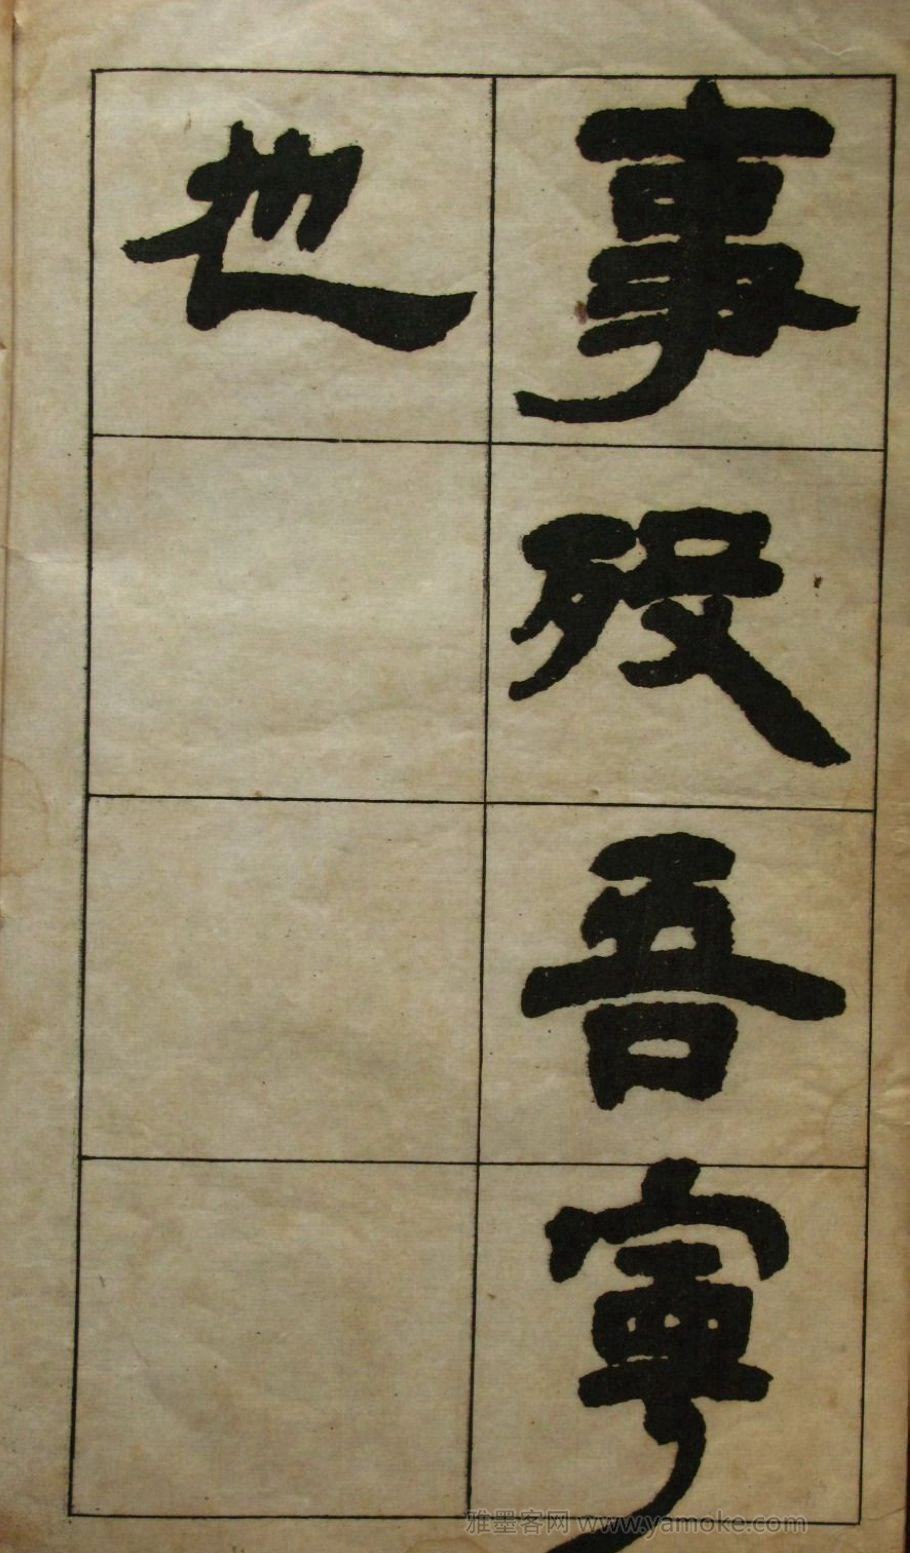 事殁吾寧
也
雅墨客网 www.yamoke.com